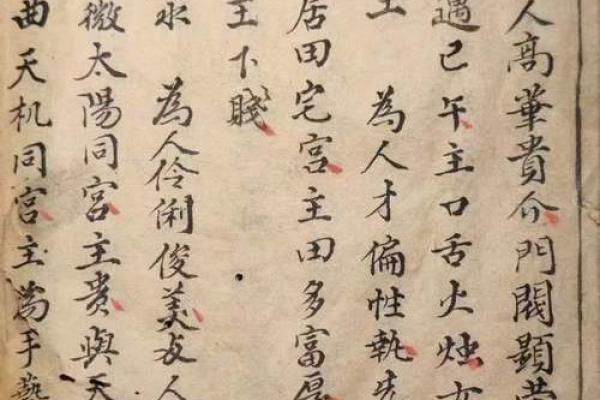 人高華貴介門閥顯荣
遇已午主口舌火烛亦
土 為人才偏性執先
居田宅宮主田多富厚
主下賤
水 為人伶俐俊美友人
微太陽同宮主貴與天
曲天机同宮主為手藝